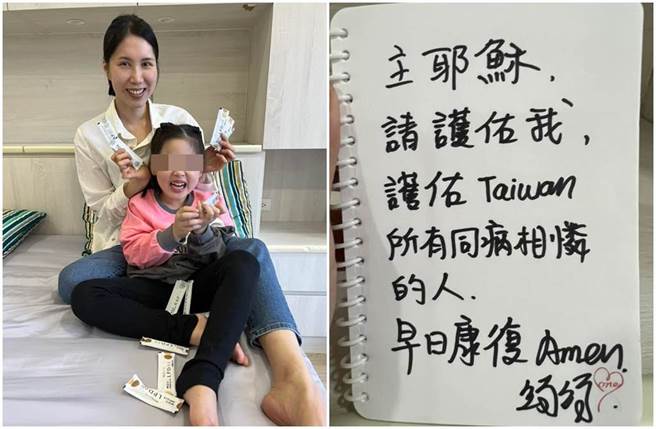 主耶穌,
請護佑我、
護佑Taiwan
所有同病相憐
的人.
早日康復Amen.
me